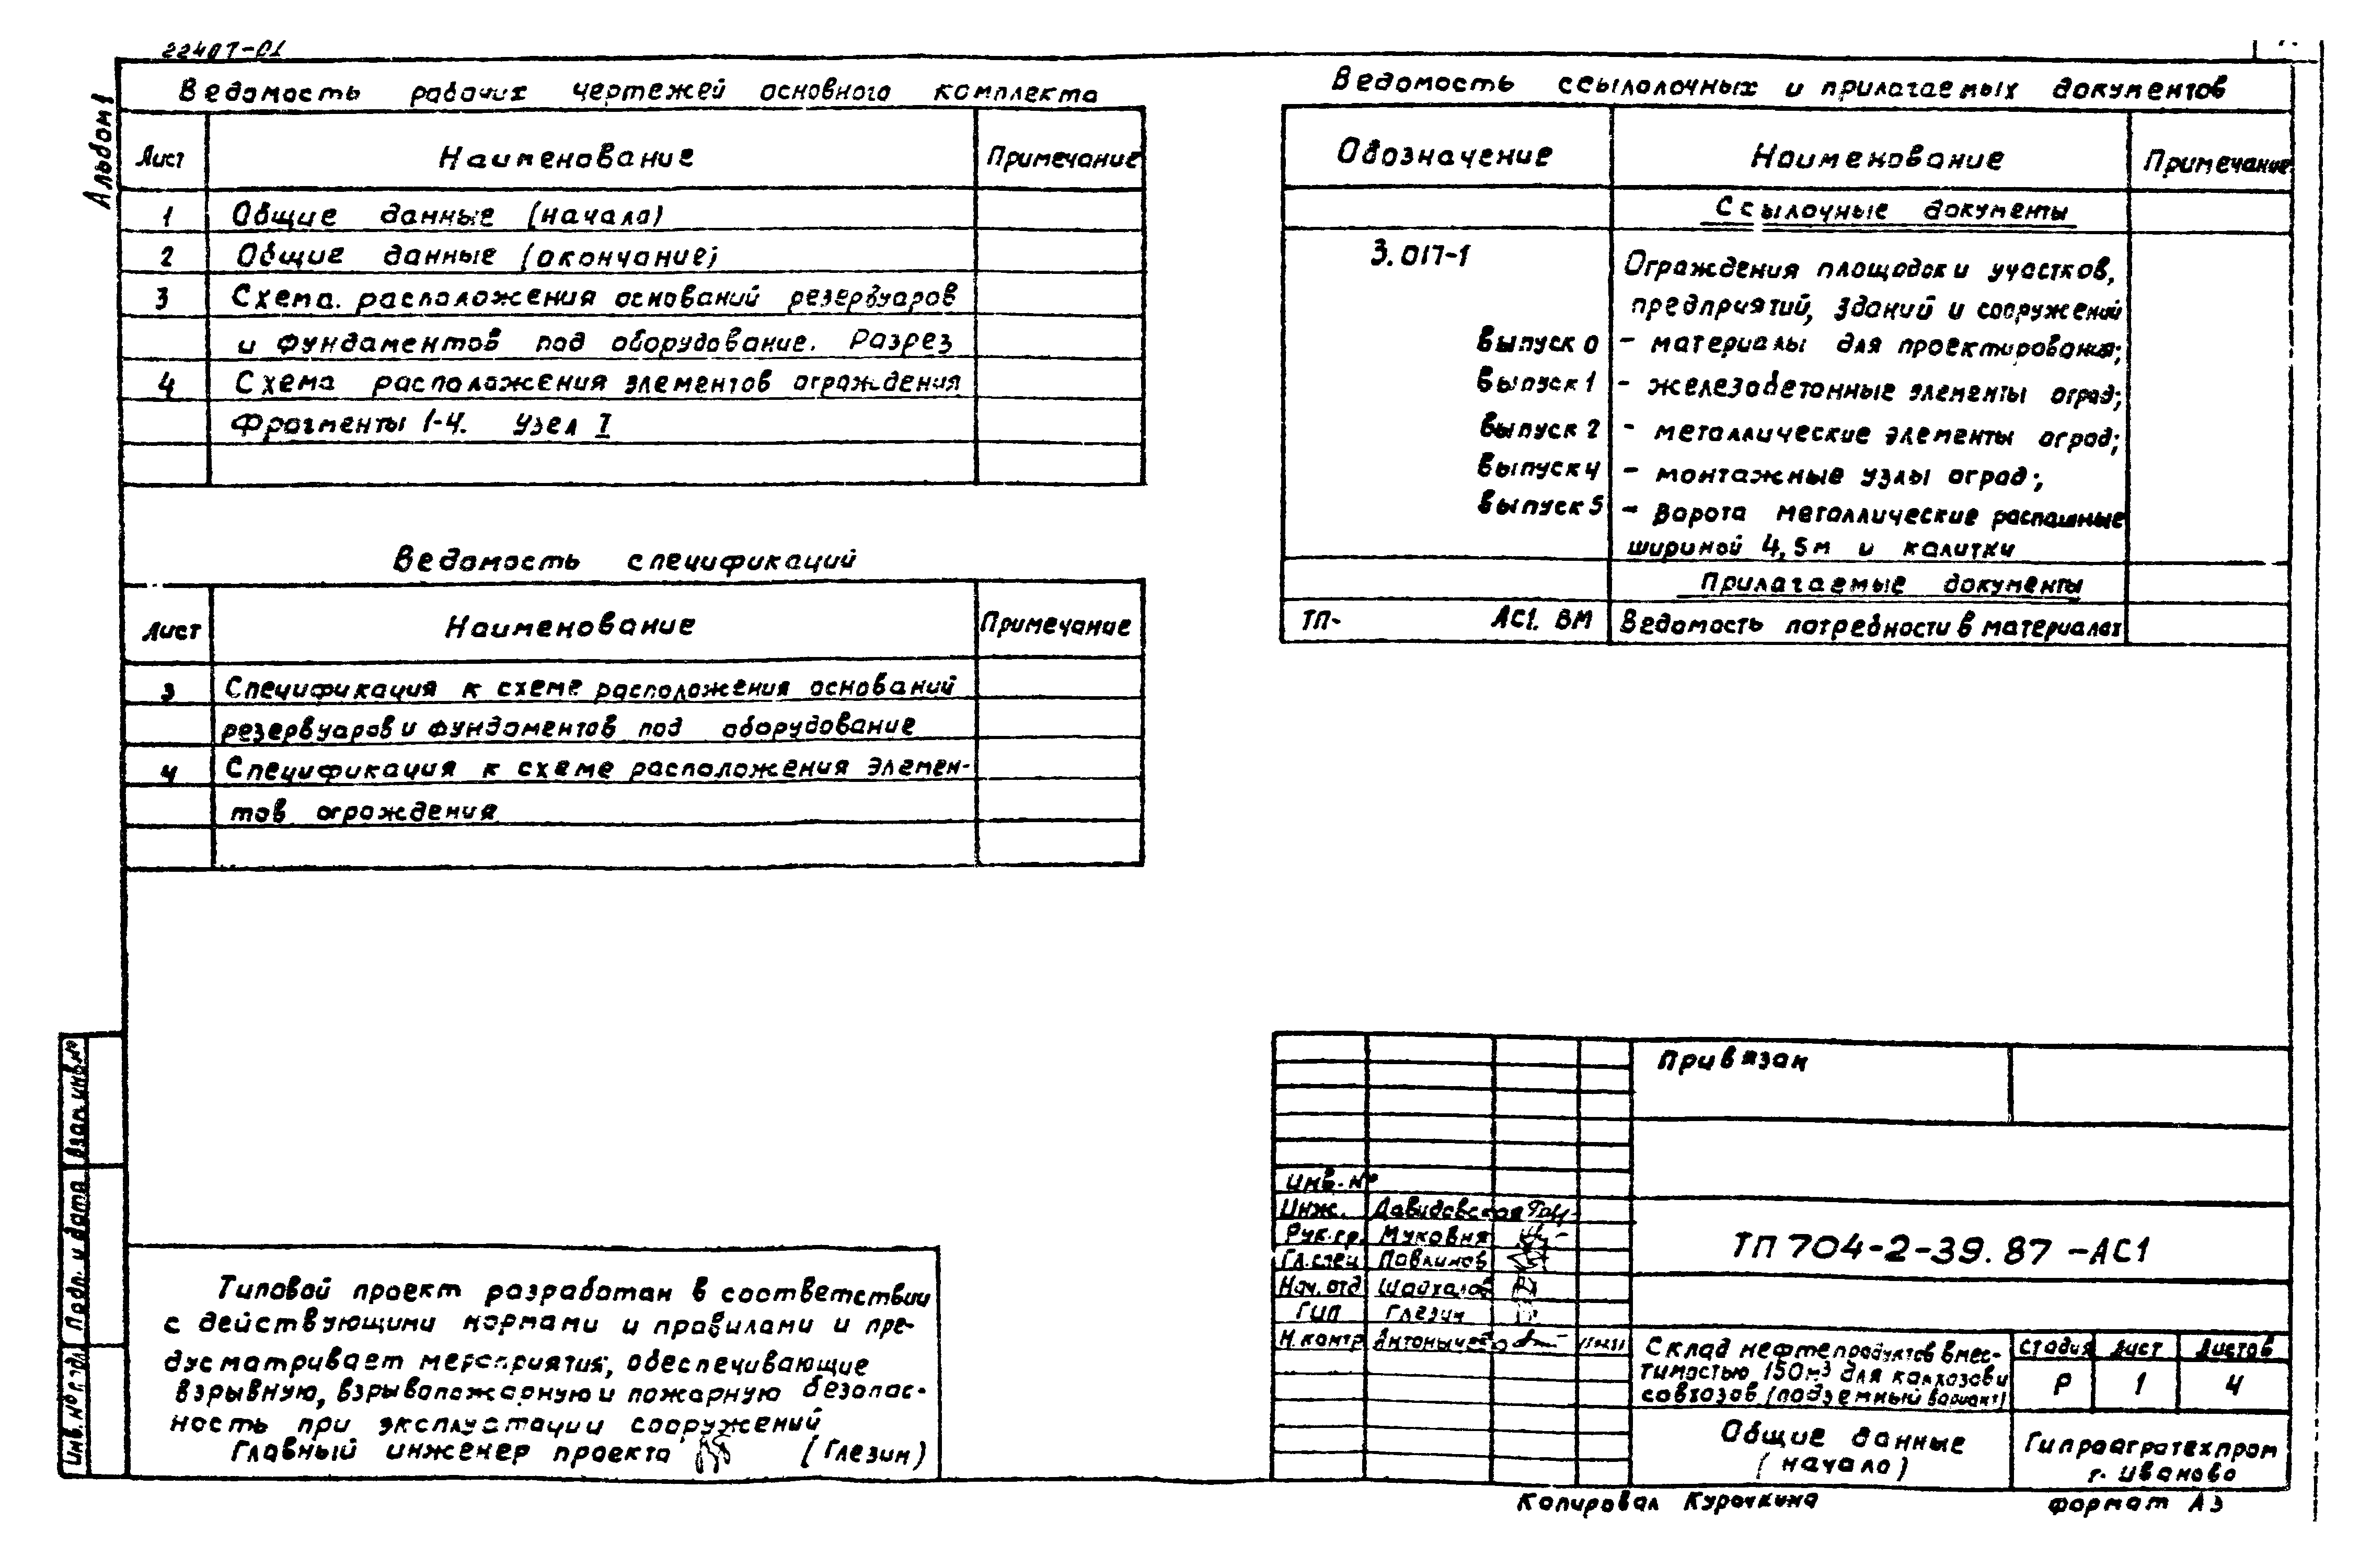 22407-01
Альбом 1
Ведомость рабочих чертежей основного комплекта
Лист Наименование Примечание
1 Общие данные (начало)
2 Общие данные (окончание)
3 Схема. расположения оснований резервуаров
и фундаментов под оборудование. Разрез
4 Схема расположения элементов ограждения
Фрагменты 1-4. Узел I
Ведомость спецификаций
Лист Наименование Примечание
3 Спецификация к схеме расположения оснований
резервуаров и фундаментов под оборудование
4 Спецификация к схеме расположения элемен-
тов ограждения
Ведомость ссылолочных и прилагаемых документов
Обозначение Наименование Примечание
Ссылочные документы
3.017-1 Ограждения площадок и участков,
предприятий, зданий и сооружений
Выпуск 0 - материалы для проектирования;
Выпуск 1 - железобетонные элементы оград;
Выпуск 2 - металлические элементы оград;
Выпуск 4 - монтажные узлы оград;
Выпуск 5 - ворота металлические распашные
шириной 4,5м и калитки
Прилагаемые документы
ТП- АС1. ВМ Ведомость потребности в материалах
Взам. инв. №
Подп. и дата
Инв. № подл
Типовой проект разработан в соответствии
с действующими нормами и правилами и пре-
дусматривает мероприятия, обеспечивающие
взрывную, взрывопожарную и пожарную безопас-
ность при эксплуатации сооружений
Главный инженер проекта (Глезин)
Привязан
Инв. №
Инж. Давидовская
Рук.гр. Муковня
Гл.спец Павлинов
Нач.отд Шайхалов
ГИП Глезин
Н.контр
ТП 704-2-39.87-АС1
Склад нефтепродуктов вмес-
тимостью 150м³ для колхозов и
совхозов (подземный вариант)
Стадия Лист Листов
Р 1 4
Общие данные
(начало)
Гипроагротехпром
г. Иваново
Копировал Курочкина Формат А3